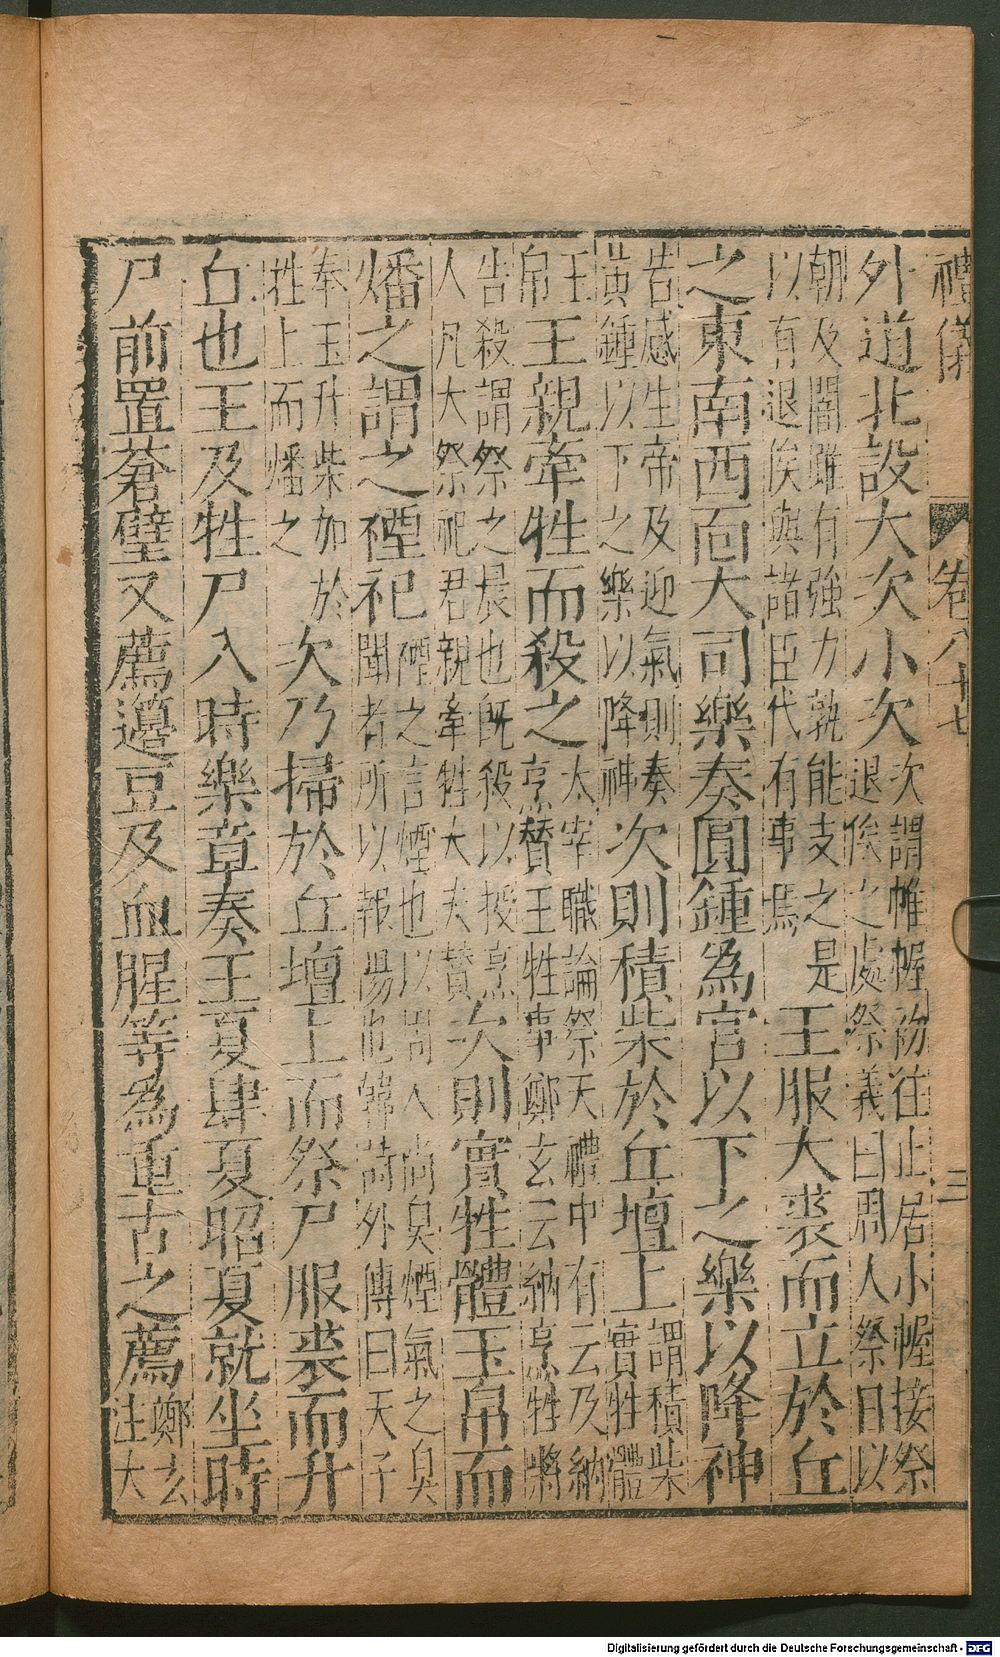 禮儀 卷八十七 三
外道北設大次小次次謂帷幄初往止居小幄接祭退俟之處祭義曰周人祭日以
朝及闇雖有強力孰能支之是以有退俟與諸臣代有事焉王服大裘而立於丘
之東南西靣大司樂奏圓鍾為宮以下之樂以降神
告感生帝及迎氣則奏黃鍾以下之樂以降神次則積柴於丘壇上謂積柴實牲體
王帛王親牽牲而殺之太宰職論祭天禮中有云及納烹贊王牲事鄭玄云納烹牲將
告殺謂祭之晨也既殺以授烹人凡大祭祀君親牽牲大夫贊次則實牲體玉帛而
燔之謂之禋祀禋之言煙也以周人尚臭煙氣之臭聞者所以報陽也韓詩外傳曰天子
奉玉升柴加於牲上而燔之次乃掃於丘壇上而祭尸服裘而升
丘也王及牲尸入時樂章奏王夏肆夏昭夏就坐時
尸前置蒼璧又薦籩豆及血腥等為重古之薦鄭玄注大
Digitalisierung gefördert durch die Deutsche Forschungsgemeinschaft - DFG